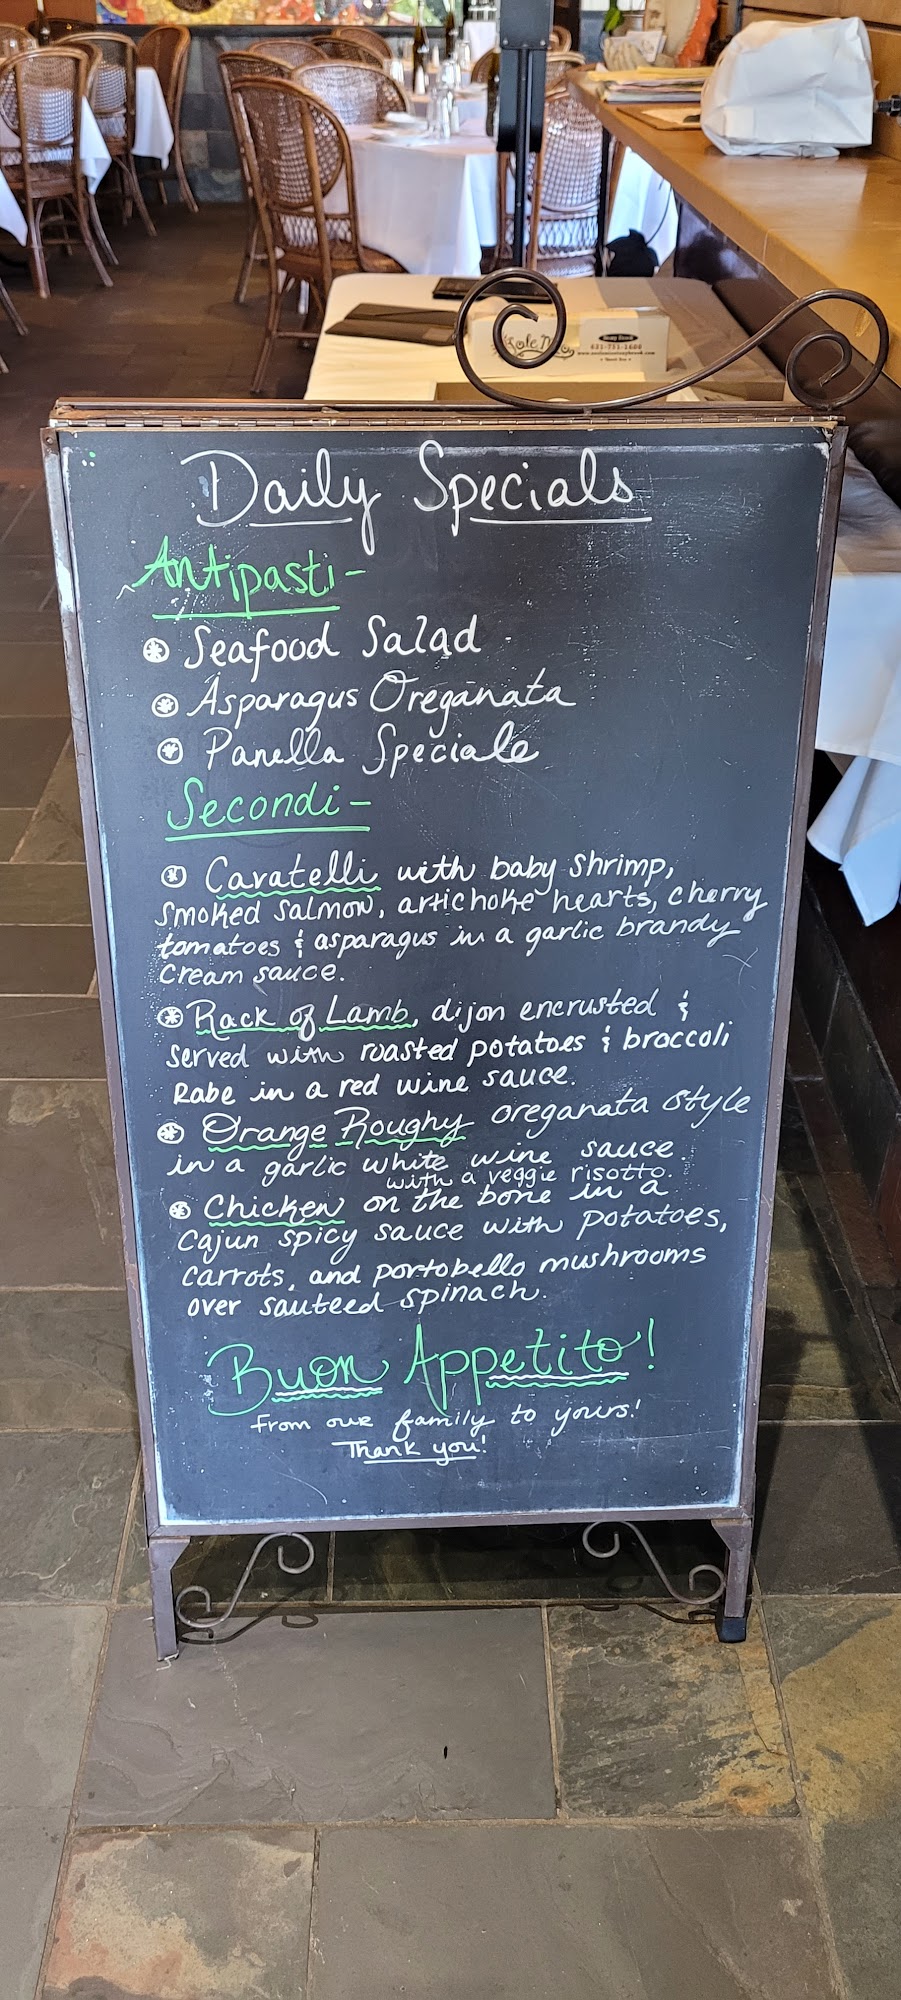 Stony Brook
631-751-1600
Daily Specials
Antipasti-
Seafood Salad
Asparagus Oreganata
Panella Speciale
Secondi-
Cavatelli with baby shrimp,
smoked salmon, artichoke hearts, cherry
tomatoes & asparagus in a garlic brandy
cream sauce.
Rack of Lamb, dijon encrusted &
served with roasted potatoes & broccoli
Rabe in a red wine sauce.
Orange Roughy oreganata style
in a garlic white wine sauce.
with a veggie risotto.
Chicken on the bone in a
cajun spicy sauce with potatoes,
carrots, and portobello mushrooms
over sauteed spinach.
Buon Appetito!
From our family to yours!
Thank you!